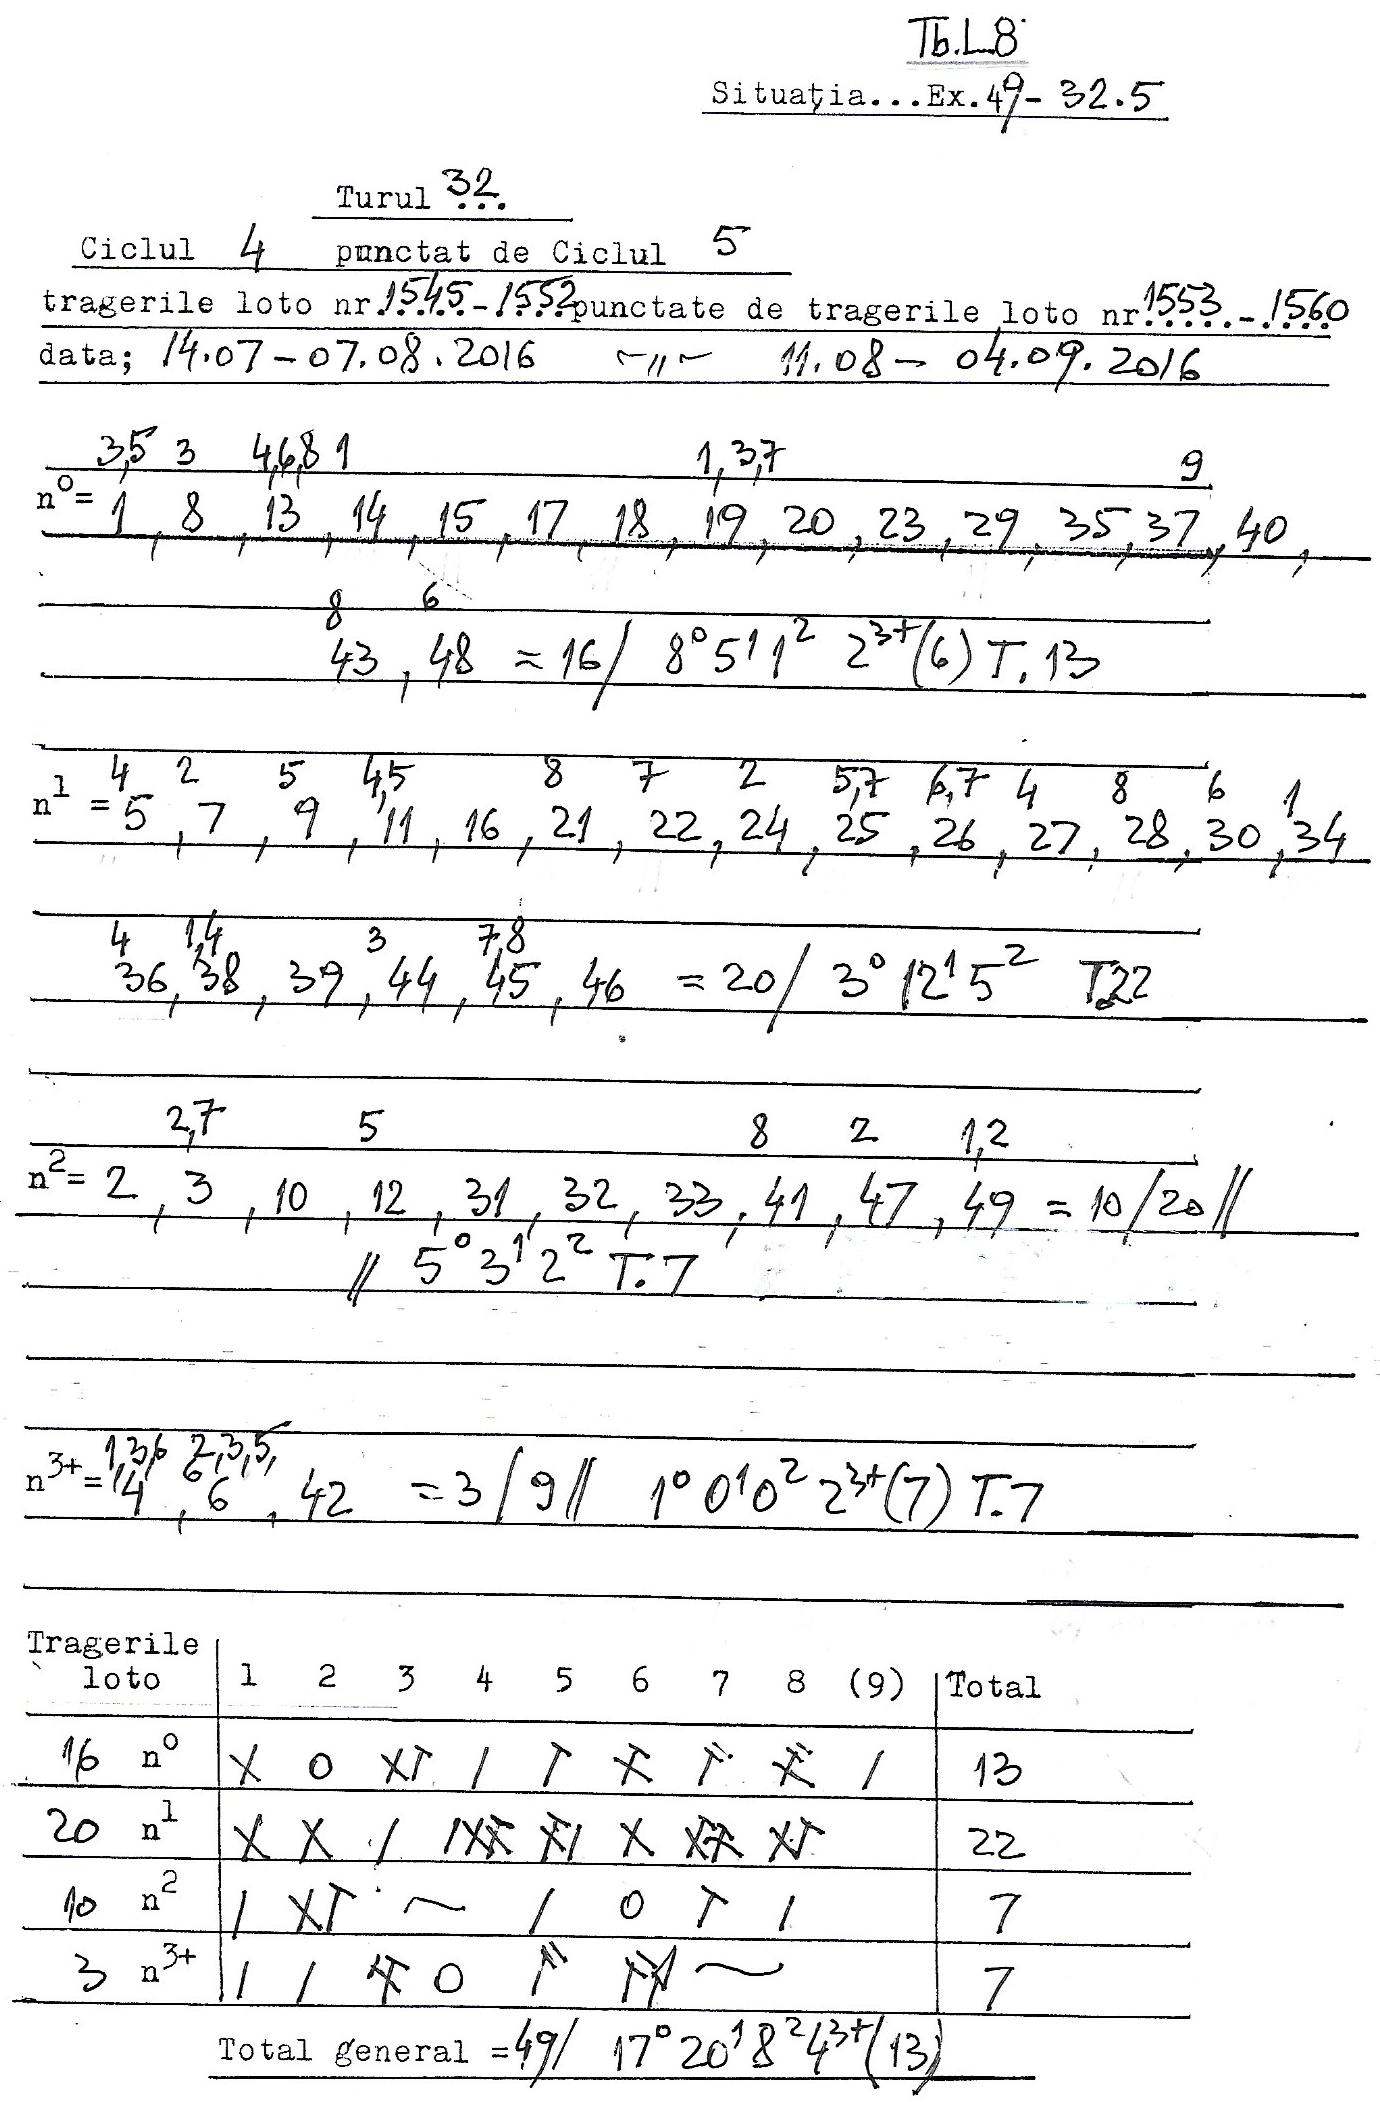 Tb.L8
Situația...Ex.49-32.5
Turul 32...
Ciclul 4 punctat de Ciclul 5
tragerile loto nr.1545-1552 punctate de tragerile loto nr.1553-1560
data; 14.07-07.08.2016 ~〃~ 11.08-04.09.2016
3,5 3 4,6,8 1 1,3,7 9
n⁰= 1, 8, 13, 14, 15, 17, 18, 19, 20, 23, 29, 35, 37, 40,
8 6
43, 48 = 16/ 8⁰5¹1² 2³⁺(6) T.13
4 2 5 4,5 8 7 2 5,7 6,7 4 8 6 1
n¹ = 5, 7, 9, 11, 16, 21, 22, 24, 25, 26, 27, 28, 30, 34
4 1,4 3 7,8
36, 38, 39, 44, 45, 46 = 20/ 3⁰ 12¹5² T.22
2,7 5 8 2 1,2
n²= 2, 3, 10, 12, 31, 32, 33, 41, 47, 49 = 10/20//
// 5⁰3¹2² T.7
1,3,6 2,3,5,
6
n³⁺= 4, 6, 42 = 3/9// 1⁰0¹0² 2³⁺(7) T.7
Tragerile
loto 1 2 3 4 5 6 7 8 (9) Total
16 n⁰ 0 13
20 n¹ 22
10 n² ~ 0 7
3 n³⁺ 0 ~ 7
Total general =49/ 17⁰20¹8²4³⁺(13)